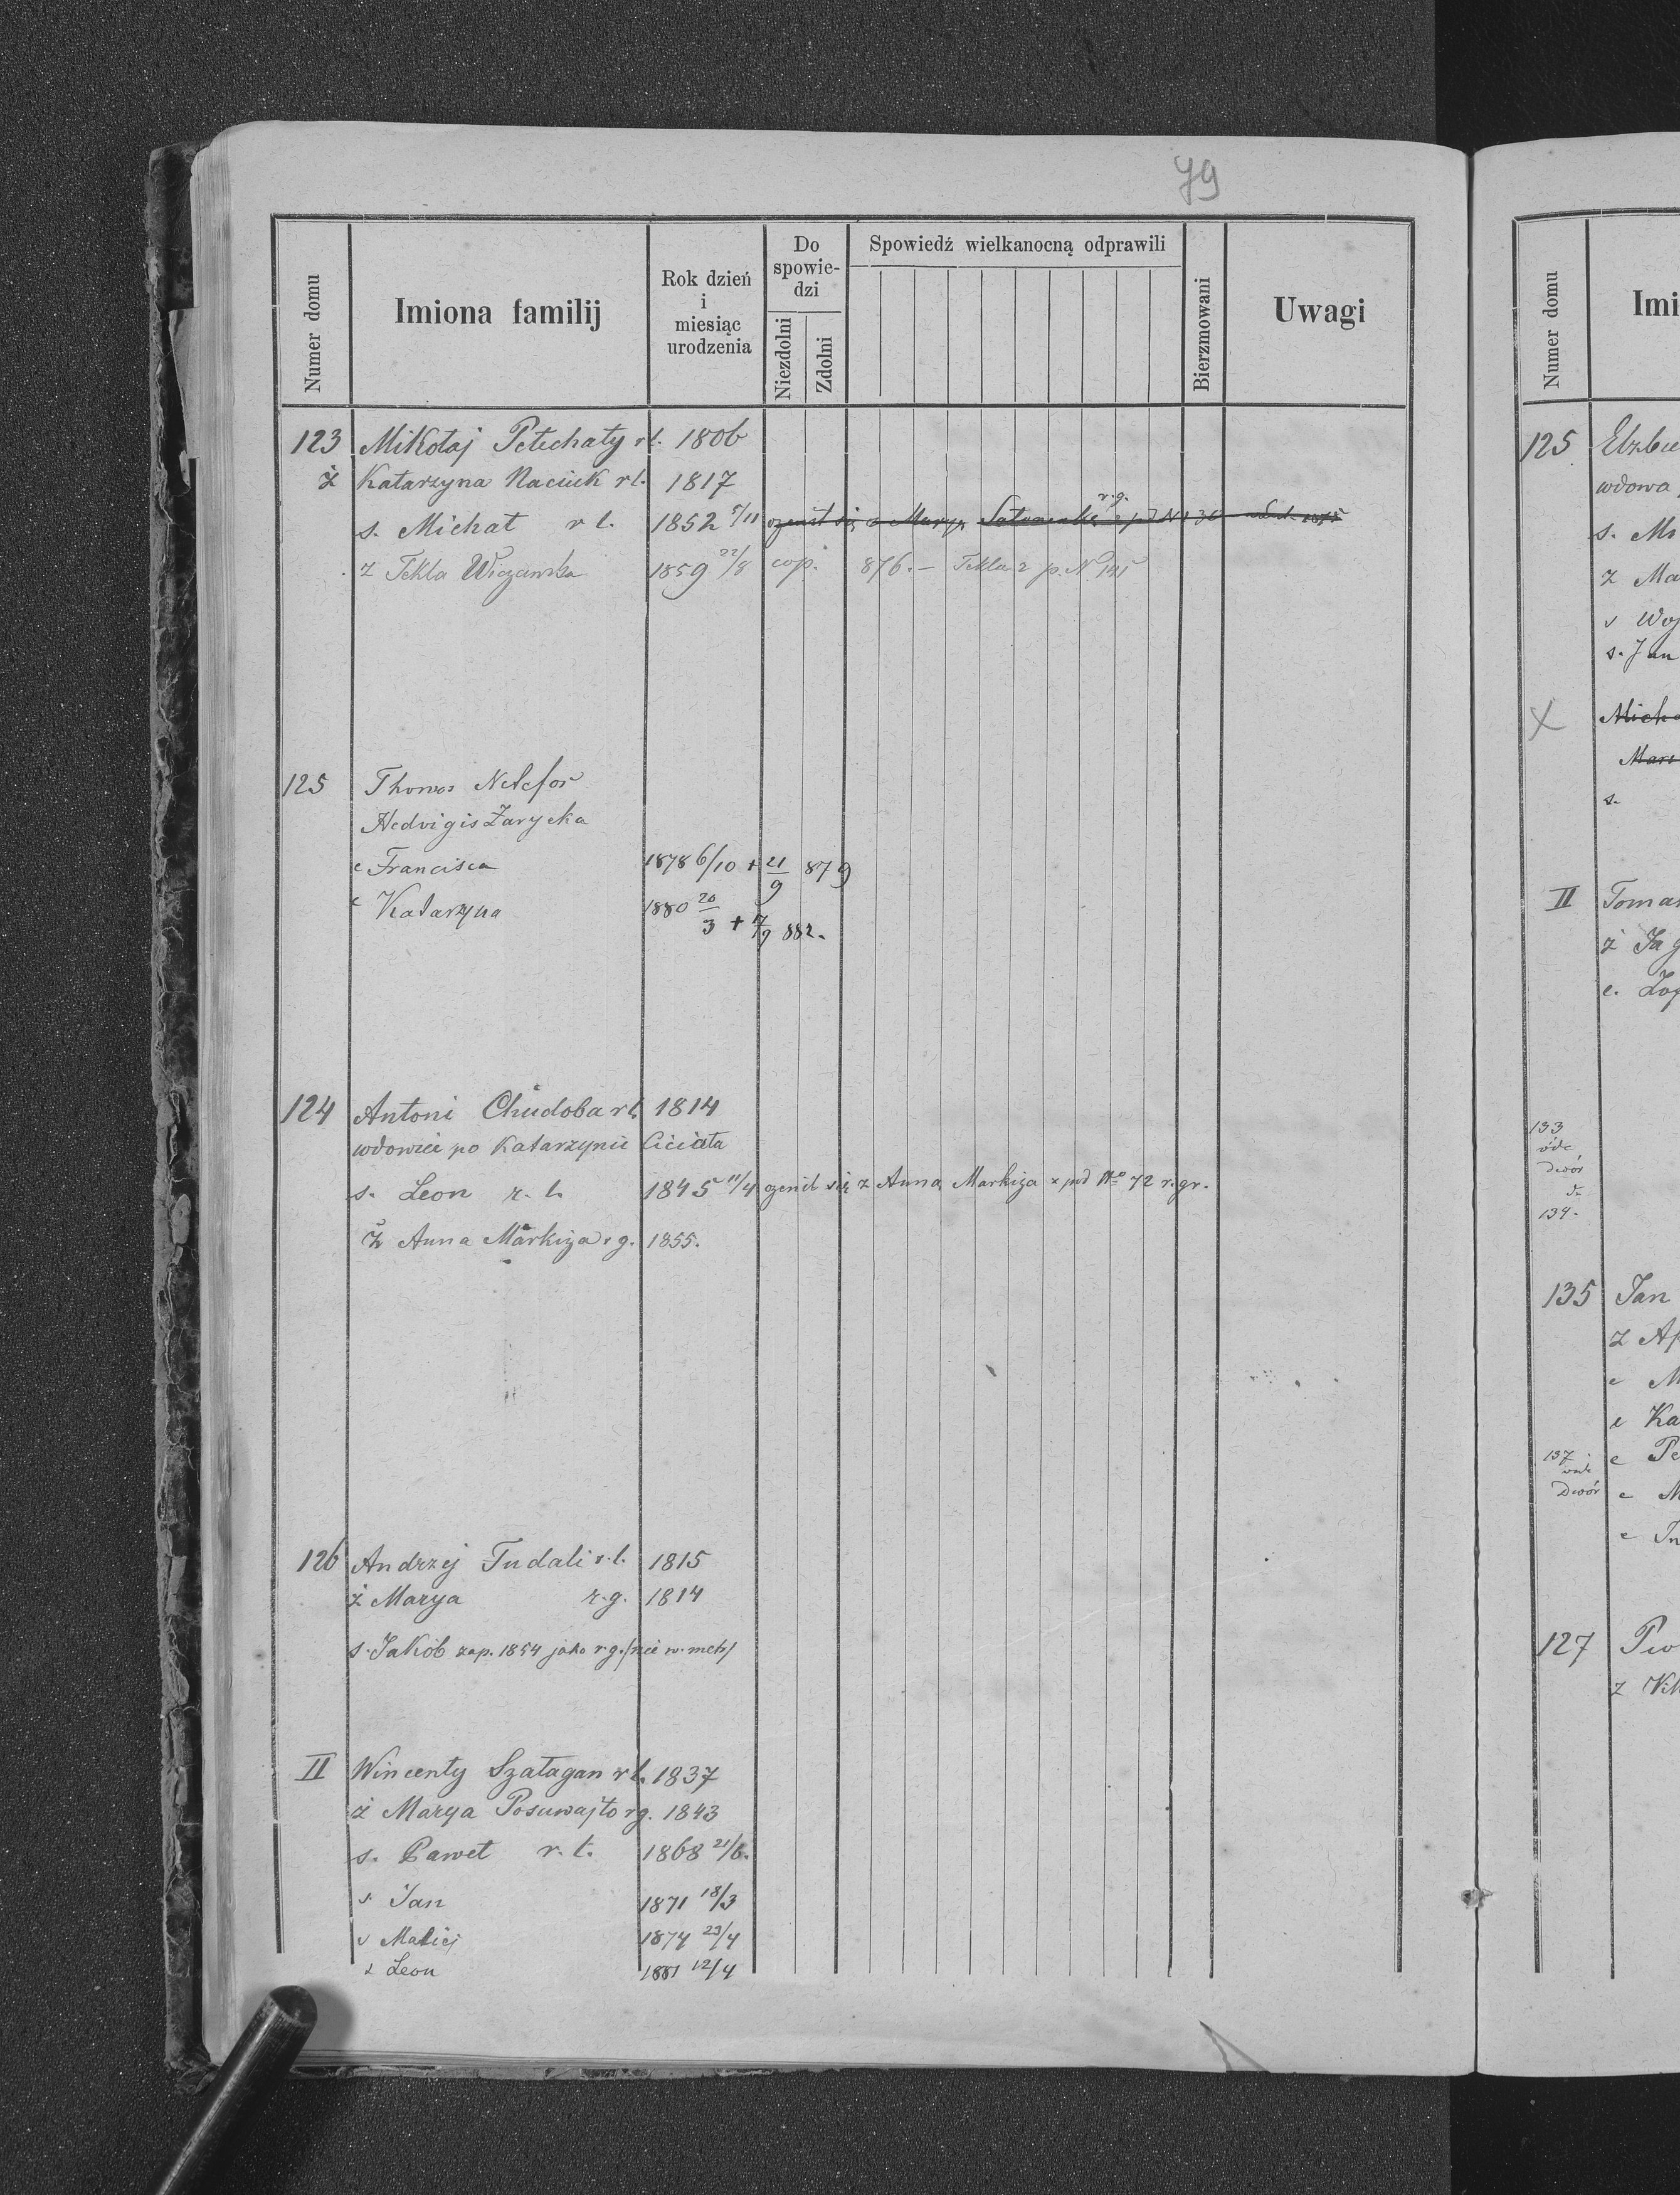 79
Numer domu
Imiona familij
Rok dzień i miesiąc urodzenia
Do spowiedzi
Niezdolni
Zdolni
Spowiedź wielkanocną odprawili
Bierzmowani
Uwagi
123 Mikołaj Petechaty r ł. 1806
ż Katarzyna Naciuk r ł. 1817
s. Michał r ł. 1852 5/11 ożenił się z Maryą r. g.
ż Tekla 1859 22/8 cop. 876. — Tekla z p. N
125 Thomas
Hedvigis Zarycka
c Francisca 1878 6/10 + 21/9 879
c Katarzyna 1880 20/3 + 17/9 882.
124 Antoni Chudoba r ł. 1814
wdowiec po Katarzynie Ciciała
s. Leon r. ł. 1845 11/4 ożenił się z Anną Markiza z pod No 72 r. gr.
ż Anna Markiza r g. 1855.
126 Andrzej Tudali r. ł. 1815
ż Marya r. g. 1814
s. Jakób zap. 1854 jako r. g. /nie w. metr/
II Wincenty Szałagan r ł. 1837
ż Marya Posuwajło r g. 1843
s. Paweł r. ł. 1868 21/6.
s. Jan 1871 18/3
s Maciej 1874 23/4
s Leon 1881 12/4
Numer domu
Imi
125
wdowa
s. Jan
II Tomas
133
Dwór
134.
135 Jan
137
Dwór
127